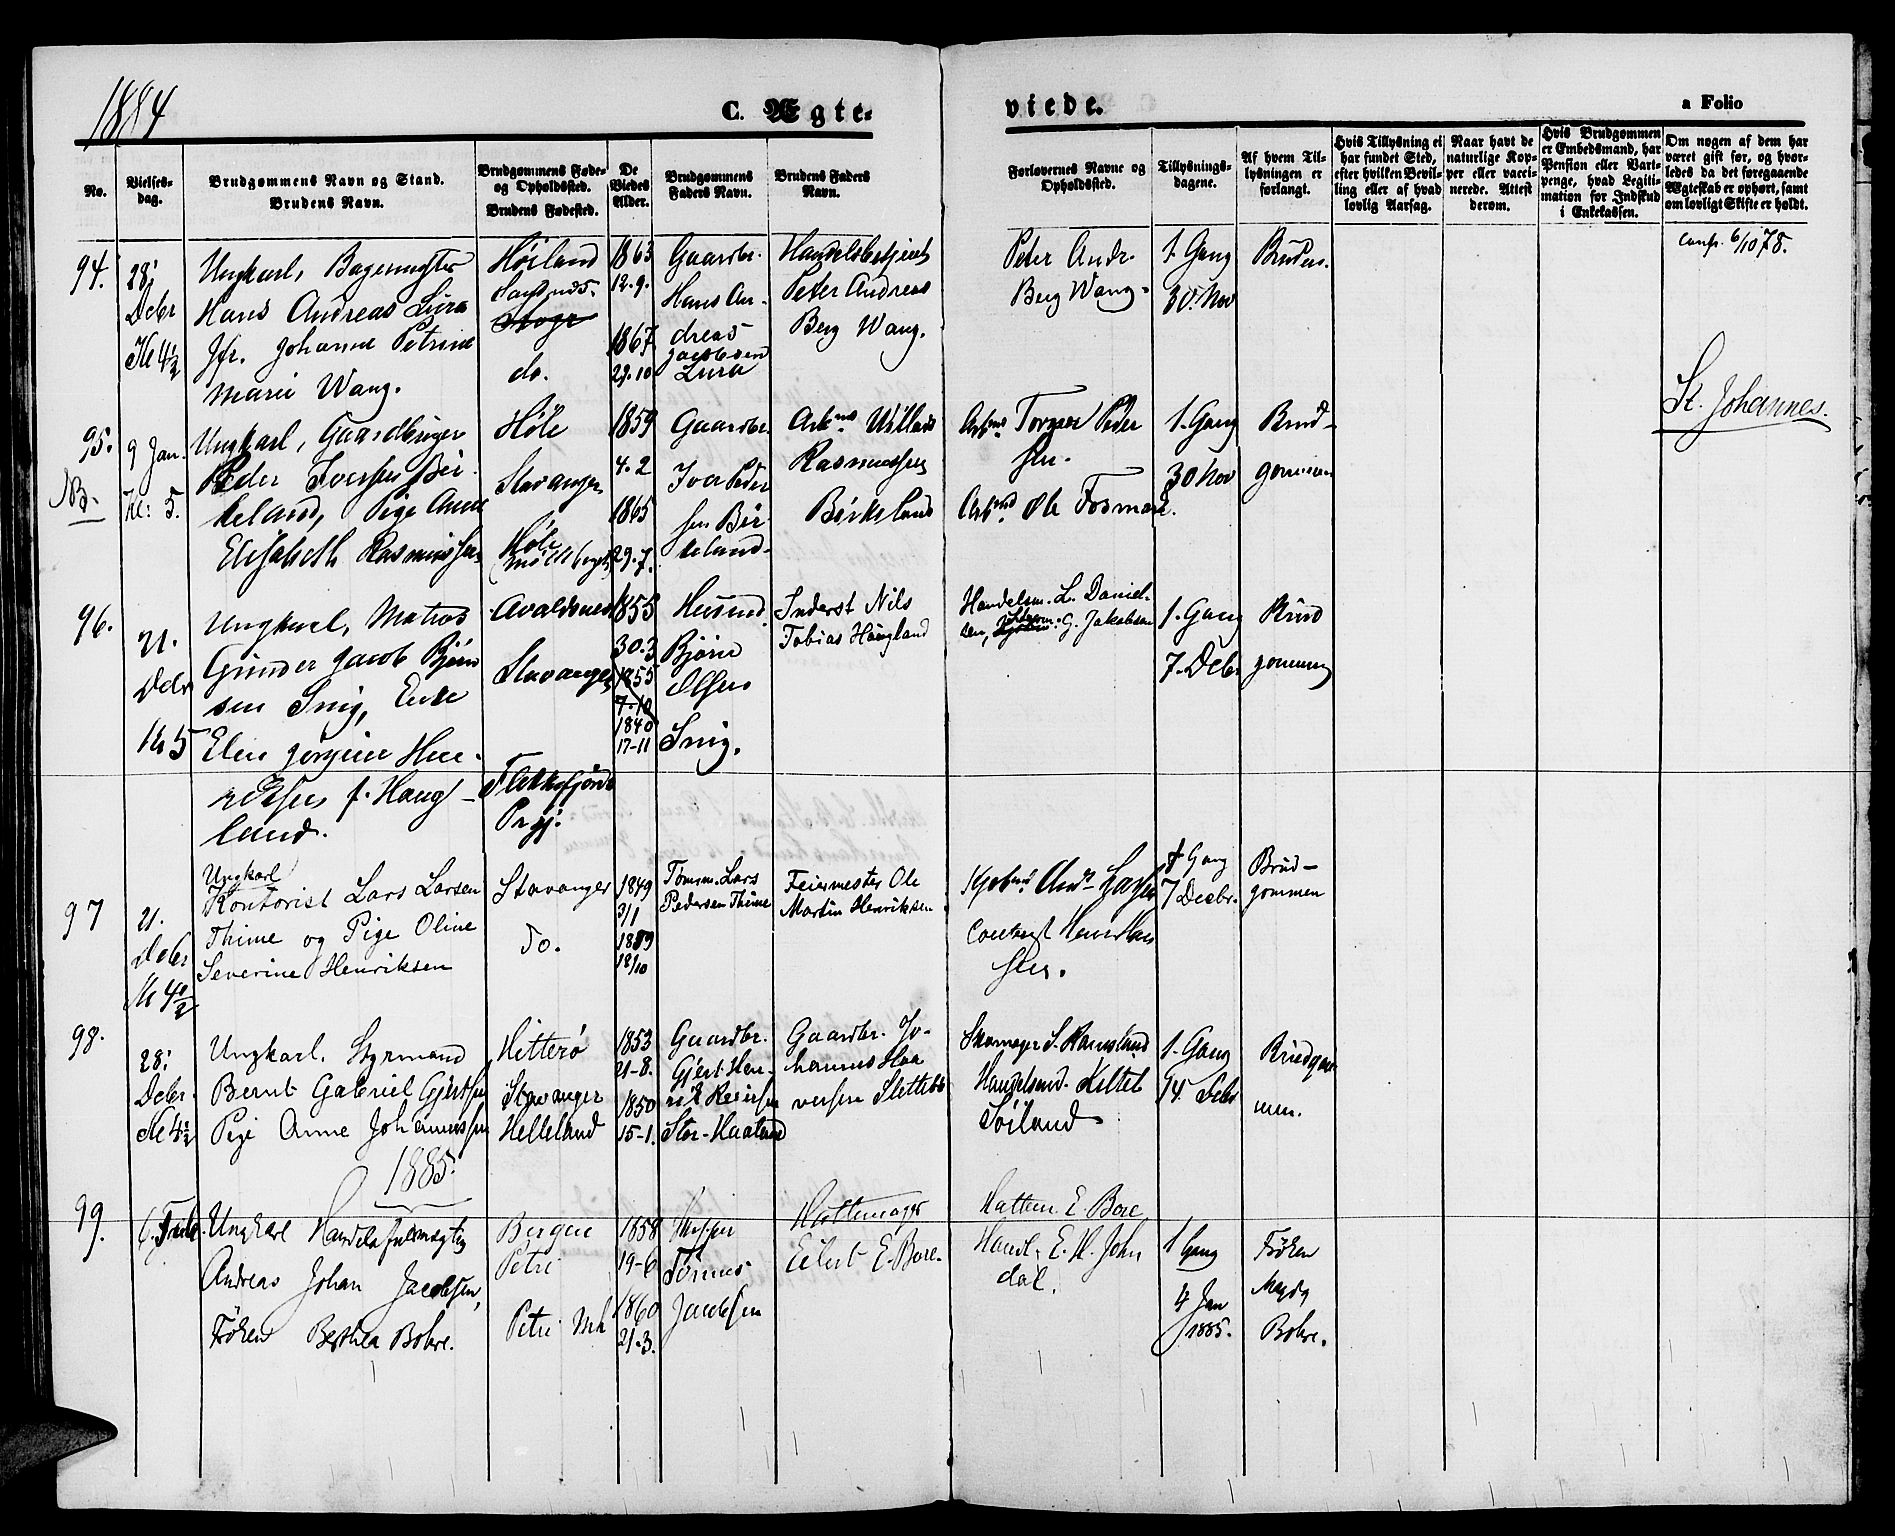 1884
C. Ægte-
viede.
a Folio
No.
Vielses-
dag.
Brudgommens Navn og Stand.
Brudens Navn.
Brudgommens Føde-
og Opholdssted.
Brudens Fødested.
De
Viedes
Alder.
Brudgommens
Faders Navn.
Brudens Faders
Navn.
Forlovernes Navne og
Opholdssted.
Tillysnings-
dagene.
Af hvem Til-
lysningen er
forlangt.
Hvis Tillysning ei
har fundet Sted,
efter hvilken Bevil-
ling eller af hvad
lovlig Aarsag.
Naar havt de
naturlige Kop-
per eller vacci-
nerede. Attest
derom.
Hvis Brudgommen
er Embedsmand, har
Pension eller Vart-
penge, hvad Legiti-
mation for Indskud
i Enkekassen.
Om nogen af dem har
været gift før, og hvor-
ledes da det foregaaende
Ægteskab er ophørt, samt
om lovligt Skifte er holdt.
94.
28.
Debr
Kl 4½
Ungkarl, Bagermester
Hans Andreas Lura
Jfr. Johanne Petrine
Marie Wang.
Høiland
do.
1863
12.9.
1867
29.10
Gaardbr.
Hans An-
dreas
Jacobsen
Lura
Handelsbetjent
Peter Andreas
Berg Wang.
Peter Andr.
Berg Wang.
1. Gang
30. Nov
Bruden.
conf. 6/10 78.
St. Johannes.
95.
NB.
9 Jan.
Kl: 5.
Ungkarl, Gaardbruger
Peder Iversen Bir-
keland, Pige Anne
Elisabeth Rasmussen
Høle
Stavanger
Høle
1859
4.2
1865
29.7.
Gaardbr.
Iver Peder
sen Bir
keland.
Arbmd Willas
Rasmussen
Birkeland
Arbmd Tormod Peder
sen.
Arbmd Ole Fosmark.
1. Gang
30 Nov
Brud-
gommen
96.
21.
Debr
Kl 5
Ungkarl, Matros
Gunder Jacob Bjørn
sen Snig, Enke
Elen Jørgine Hen-
riksen f. Haug-
land.
Avaldsnes
Stavanger
Flekkefjords
Prgj.
1855
30.3
1855
7-10
1840
17-11
Husmd.
Bjørn
Olsen
Snig.
Inderst Nils
Tobias Haugland
Handelsm. L. Daniel-
sen, G. Jakobsen
1. Gang
7. Debr
Brud
gommen
97
21.
Debr
Kl 4½
Ungkarl
Kontorist Lars Larsen
Thime og Pige Oline
Severine Henriksen
Stavanger
Do.
1849
3/1
1859
18/10
Tømm. Lars
Pedersen Thime
Feiermester Ole
Martin Henriksen
Kjøbmd Ands
Henr Han
sen.
1 Gang
7 Decbr.
Brud-
gommen
98.
28.
Debr.
Kl 4½
Ungkarl, Styrmand
Bernt Gabriel Gjertsen
Pige Anne Johannessen
Hitterø
Stavanger
Helleland
1853
21-8.
1850
15-1.
Gaardbr.
Gjert Hen-
rik Reiersen
Stor-Haaland
Gaardbr. Jo-
hannes Haa
versen Slettebø
Skomager S. Ramsland
Handelsmd. Kittel
Søiland
1. Gang
14. Debr
Brudgom
men.
1885.
99.
Ungkarl Handelsfuldmægtig
Andreas Johan Jacobsen,
Frøken Berthea Bohre.
Bergen
Petri
Petri Mh
1858
19-6
1860
21.3.
Skipper
Tønnes
Jacobsen
Hattemager
Eilert E. Bore.
Hattem. E. Bore
Handl. E. H. John
dal.
1 Gang
4 Jan
1885.
Frøken
Magda
Bohre.